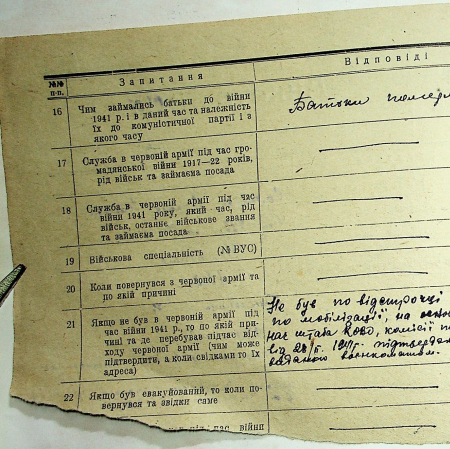 №№ п-п. Запитання Відповіді
16 Чим займались батьки до війни
1941 р. і в даний час та належність
їх до комуністичної партії і з
якого часу
Батьки
17 Служба в червоній армії під час гро-
мадянської війни 1917—22 років,
рід військ та займаєма посада
18 Служба в червоній армії під час
війни 1941 року, який час, рід
військ, останнє військове звання
та займаєма посада
19 Військова спеціальність (№ ВУС)
20 Коли повернувся з червоної армії та
по якій причині
21 Якщо не був в червоній армії під
час війни 1941 р., то по якій при-
чині та де перебував підчас від-
ходу червоної армії (чим може
підтвердити, а коли свідками то їх
адреса)
Не був по відстрочці
по мобілізації, на
наг штаба
від
військкоматом.
22 Якщо був евакуйований, то коли по-
вернувся та звідки саме
під час війни